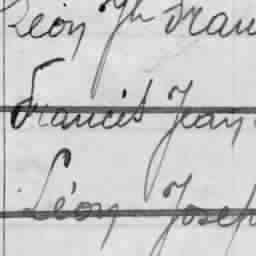 Léon Jh Fran
Francis Jean
Léon Joseph